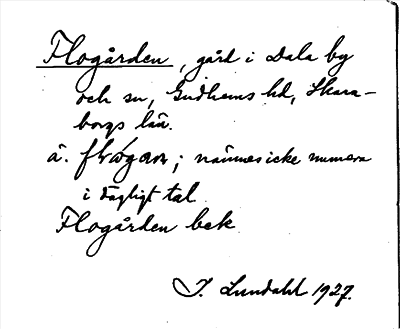 Flogården, gård i Dala by
och sn, Gudhems hd, Skara-
borgs län.
ä. flógan; nämnes icke numera
i dagligt tal
Flogården bek
I. Lundahl 1927.